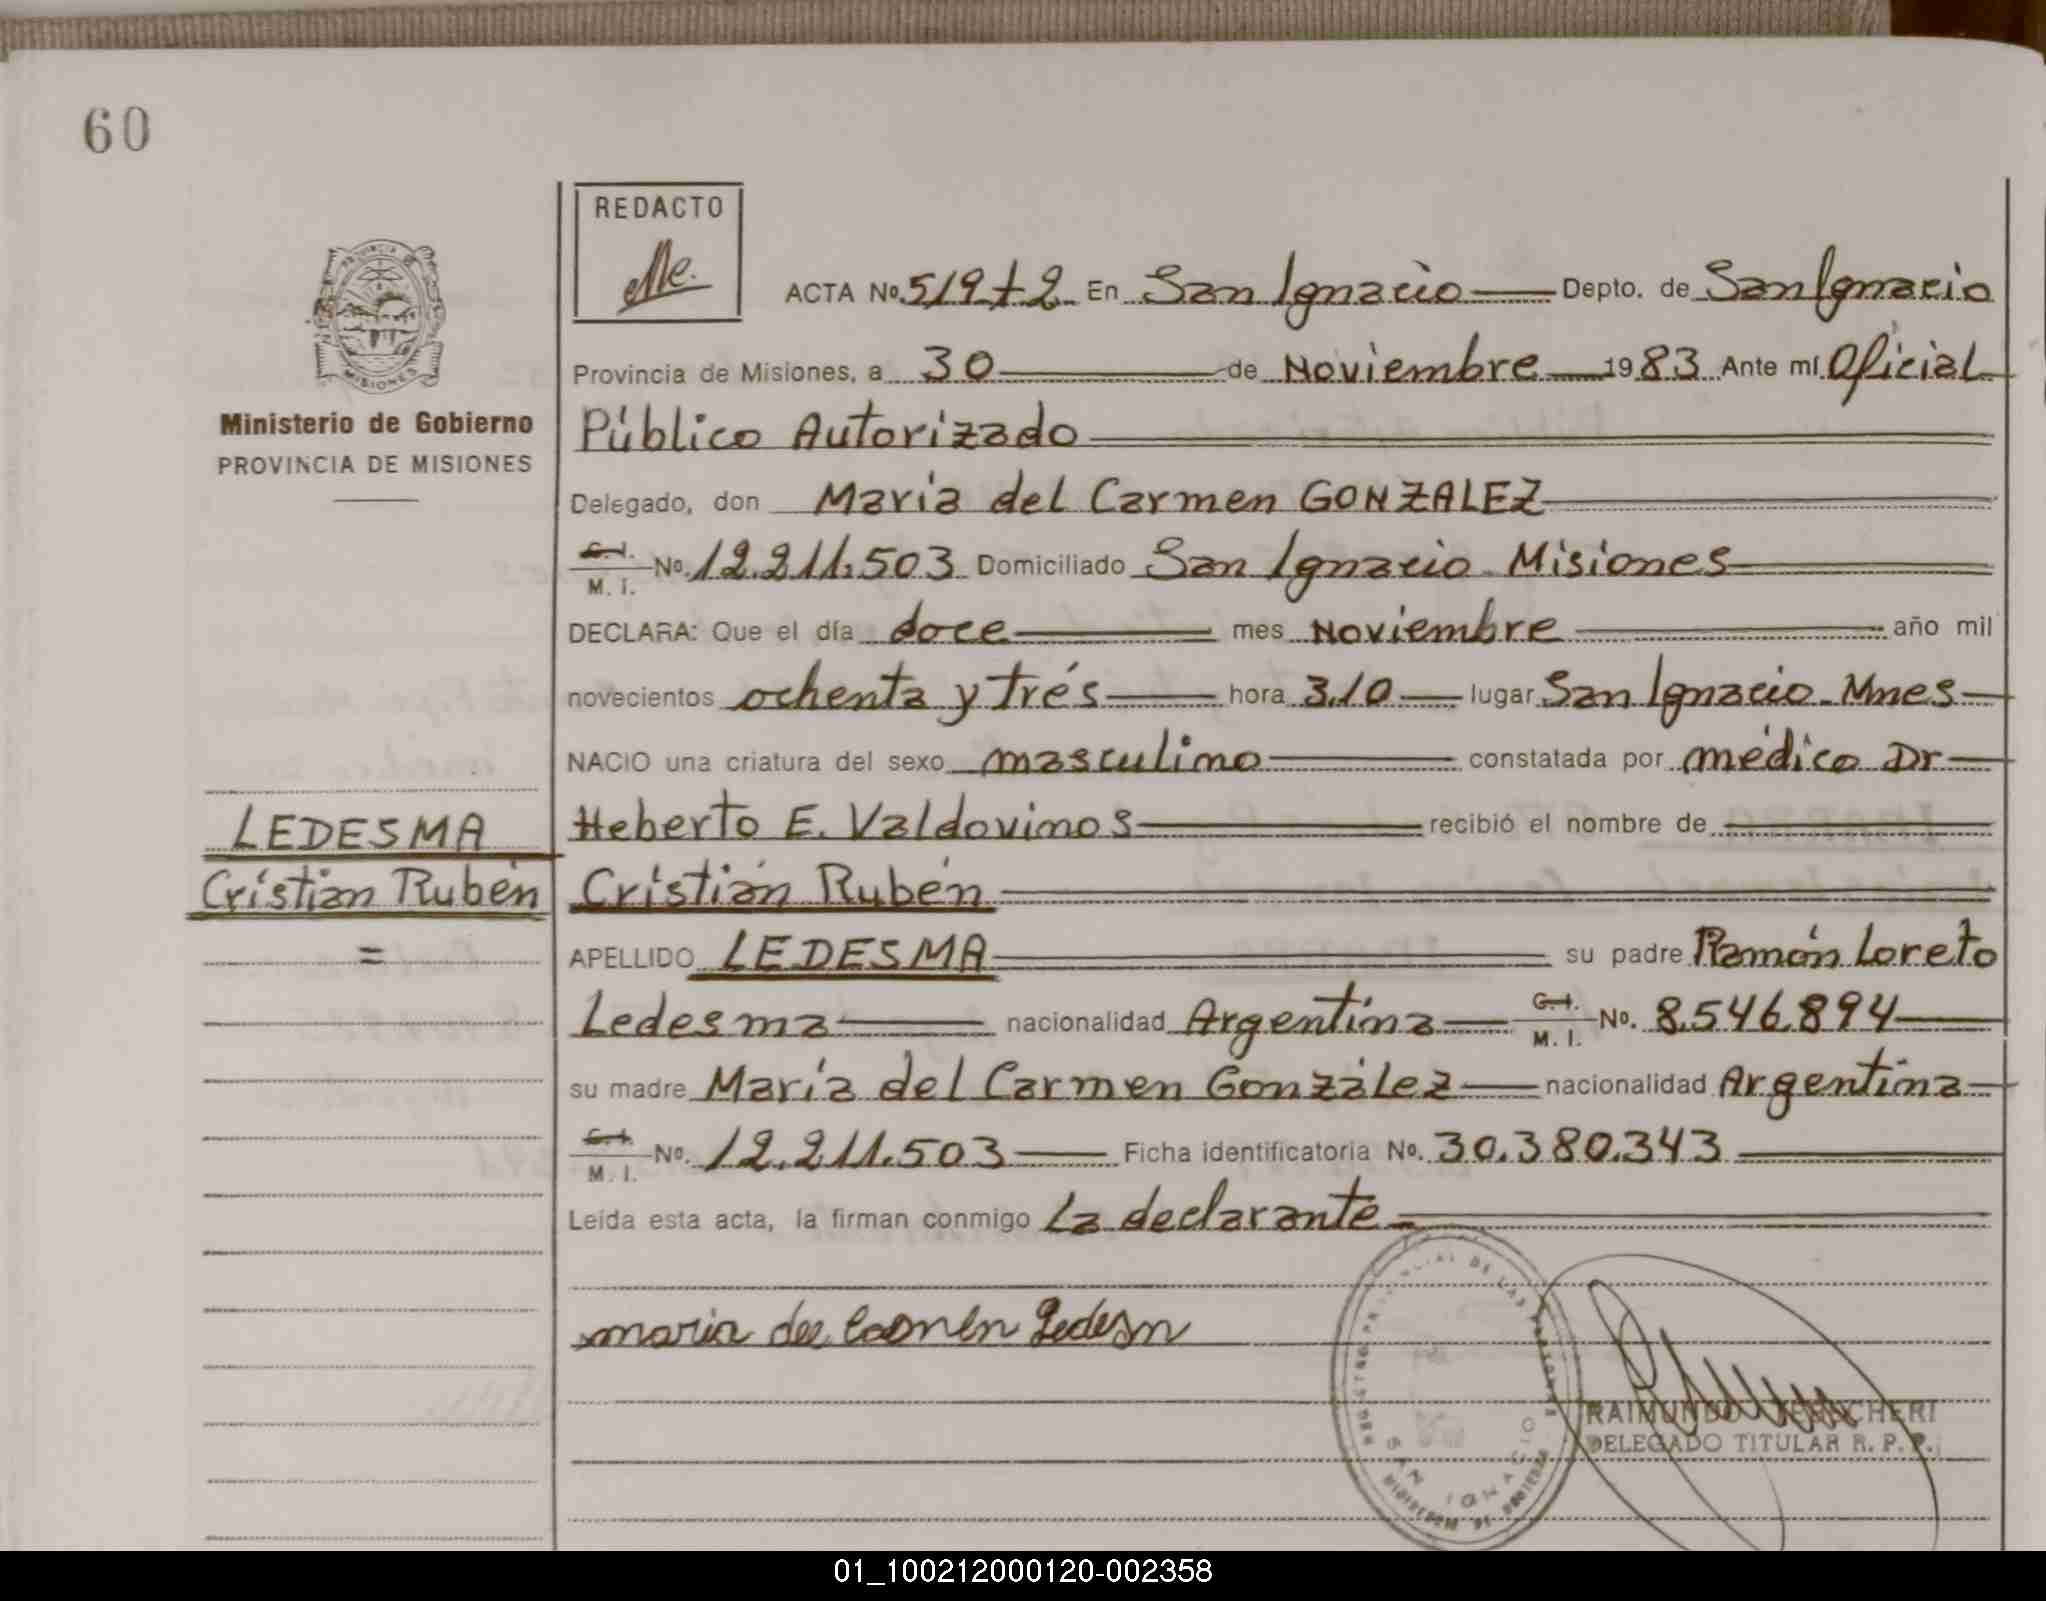 60
REDACTO
ACTA Nº 519 t 2 En San Ignacio Depto. de San Ignacio
PROVINCIA DE MISIONES
Provincia de Misiones, a 30 de Noviembre 1983 Ante mí Oficial
Ministerio de Gobierno
PROVINCIA DE MISIONES
Público Autorizado
Delegado, don María del Carmen GONZALEZ
C. I. M. I. Nº 12.211.503 Domiciliado San Ignacio Misiones
DECLARA: Que el día doce mes Noviembre año mil
novecientos ochenta y trés hora 3.10 lugar San Ignacio - Mnes
NACIO una criatura del sexo masculino constatada por médico Dr
LEDESMA
Heberto E. Valdovinos recibió el nombre de
Cristián Rubén
Cristián Rubén
=
APELLIDO LEDESMA su padre Ramón Loreto
Ledesma nacionalidad Argentina C. I. M. I. No. 8.546.894
su madre María del Carmen González nacionalidad Argentina
C. I. M. I. Nº. 12.211.503 Ficha identificatoria No. 30.380.343
Leída esta acta, la firman conmigo la declarante
maria del Carmen Ledesm
REGISTRO PROVINCIAL DE LAS PERSONAS
SAN IGNACIO
RAIMUNDO
DELEGADO TITULAR R. P. P.
01_100212000120-002358